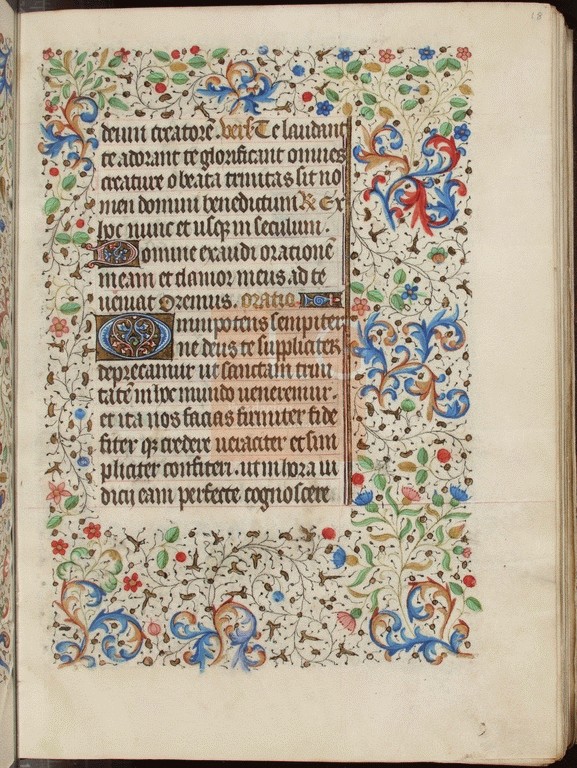 18
deum creatorē. Vers̄ Te laudant
te adorant te glorificant omnes
creature o beata trinitas sit no
men domini benedictum R Ex
hoc nunc et usq̄ in seculum.
Domine exaudi orationē
meam et clamor meus ad te
veniat Oremus. oratio
Omnipotens sempiter
ne deus te suppliciter
deprecamur ut sanctam trini
tatē in hoc mundo veneremur.
et ita nos facias firmiter fide
liter q̄ credere veraciter et sim
pliciter confiteri . ut in hora iu
dicii eam perfecte cognoscere